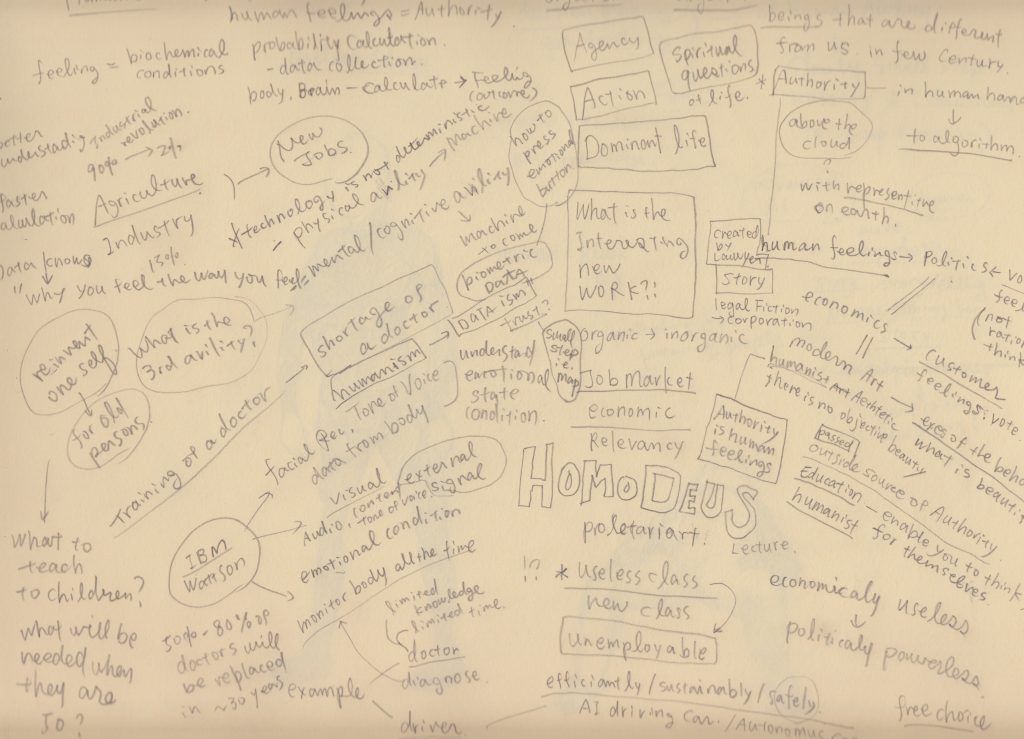 human feelings = Authority.
feeling = biochemical
conditions
probability Calculation.
- data collection.
body, Brain - Calculate → Feeling
(outcome)
machine
better
understadig
Industrial
revolution.
90% → 2%
faster
calculation
Agriculture
Industry
15%
New
Jobs.
* technology is not deterministic
- physical avility
- mental/cognitive avility
Data knows
"why you feel the way you feel"
how to
press
emotional
button
machine
to come
biometric
DATA
"DATA ism"
trust?
Agency
Action
Dominant life
Spiritual
questions
of life.
beings that are different
from us in few Century.
* Authority — in human hand
to algorithm.
above the
cloud
with representitive
on earth.
What is the
Interesting
new
WORK?!
created
by
Lawyer
Story
legal Fiction
→ corporation
human feelings → Politics
(not
economics
Customer
feelings: vote
modern Art
humanist Art Aesthetic
there is no objective beauty
→ eyes of the
what is
passed
outside source of Authority
Education - enable you to think
humanist
for themselves.
Authority
is human
feelings
reinvent
one self
for old
peasons.
What is the
3rd avility?
shortage of
a doctor
humanism
Training of a doctor
Tone of Voice
understand
emotional
state
condition.
small
step
i.e.
map
organic → inorganic
Job Market
economic
Relevancy
HOMO DEUS
proletariart.
Lecture.
facial
data from body
visual
external
signal
Audio, content
tone of voice.
emotional condition
monitor body all the time
IBM
Watson
what to
teach
to children?
what will be
needed when
they are
50% - 80% of
doctors will
be replaced
in ~30 years
example
limited
knowledge
limited time.
doctor
diagnose.
driver
!?
* useless class
new class
unemployable
efficiantly / sustainably / safely.
AI driving Car. / Autonomus
economicaly useless
politicaly powerless.
free choice